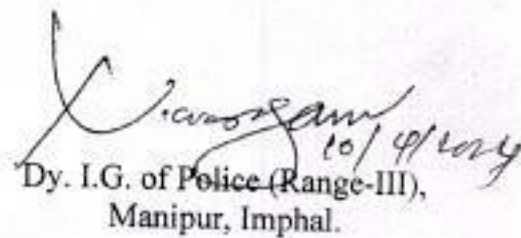 10/4/2024
Dy. I.G. of Police (Range-III),
Manipur, Imphal.